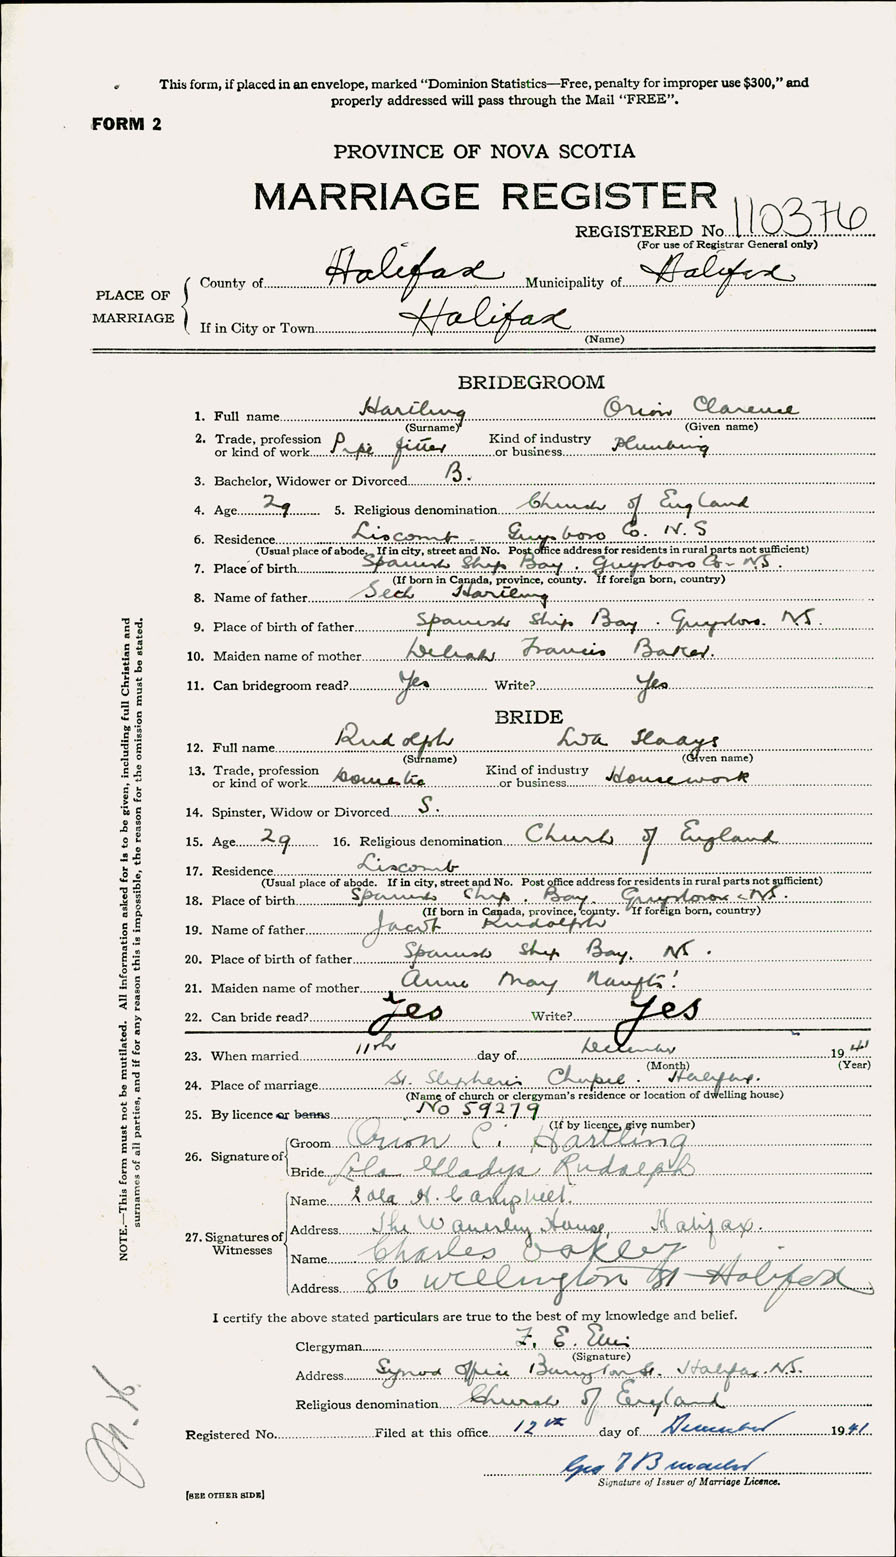 This form, if placed in an envelope, marked “Dominion Statistics—Free, penalty for improper use $300,” and
properly addressed will pass through the Mail “FREE”.
FORM 2
PROVINCE OF NOVA SCOTIA
MARRIAGE REGISTER
REGISTERED No. 110376
(For use of Registrar General only)
PLACE OF MARRIAGE
County of Halifax Municipality of Halifax
If in City or Town Halifax
(Name)
BRIDEGROOM
1. Full name Hartling Orion Clarence
(Surname) (Given name)
2. Trade, profession or kind of work Pipe fitter Kind of industry or business Plumbing
3. Bachelor, Widower or Divorced B.
4. Age 29 5. Religious denomination Church of England
6. Residence Liscomb - Guysboro Co. N.S
(Usual place of abode. If in city, street and No. Post office address for residents in rural parts not sufficient)
7. Place of birth Spanish Ship Bay. Guysboro Co- NS.
(If born in Canada, province, county. If foreign born, country)
8. Name of father Seth Hartling
9. Place of birth of father Spanish Ship Bay. Guysboro. NS.
10. Maiden name of mother Deliah Francis Baker.
11. Can bridegroom read? Yes Write? Yes
BRIDE
12. Full name Rudolph Lola Gladys
(Surname) (Given name)
13. Trade, profession or kind of work Domestic Kind of industry or business Housework
14. Spinster, Widow or Divorced S.
15. Age 29 16. Religious denomination Church of England
17. Residence Liscomb
(Usual place of abode. If in city, street and No. Post office address for residents in rural parts not sufficient)
18. Place of birth Spanish Ship. Bay. Guysboro NS.
(If born in Canada, province, county. If foreign born, country)
19. Name of father Jacob Rudolph
20. Place of birth of father Spanish Ship Bay. NS.
21. Maiden name of mother Annie May
22. Can bride read? Yes Write? Yes
23. When married 11th day of December 1941
(Month) (Year)
24. Place of marriage St. Stephen's Chapel. Halifax.
(Name of church or clergyman's residence or location of dwelling house)
25. By licence or banns No 59279
(If by licence, give number)
26. Signature of
Groom Orion C. Hartling
Bride Lola Gladys Rudolph
27. Signatures of Witnesses
Name Lola H. Campbell
Address The Waverley House, Halifax.
Name Charles Oakley
Address 86 Wellington St Halifax
I certify the above stated particulars are true to the best of my knowledge and belief.
Clergyman F. E. Ellis
(Signature)
Address Synod Office Barrington St. Halifax. N.S.
Religious denomination Church of England
Registered No. Filed at this office 12th day of December 1941
Geo
Signature of Issuer of Marriage Licence.
[SEE OTHER SIDE]
NOTE.—This form must not be mutilated. All information asked for is to be given, including full Christian and
surnames of all parties, and if for any reason this is impossible, the reason for the omission must be stated.